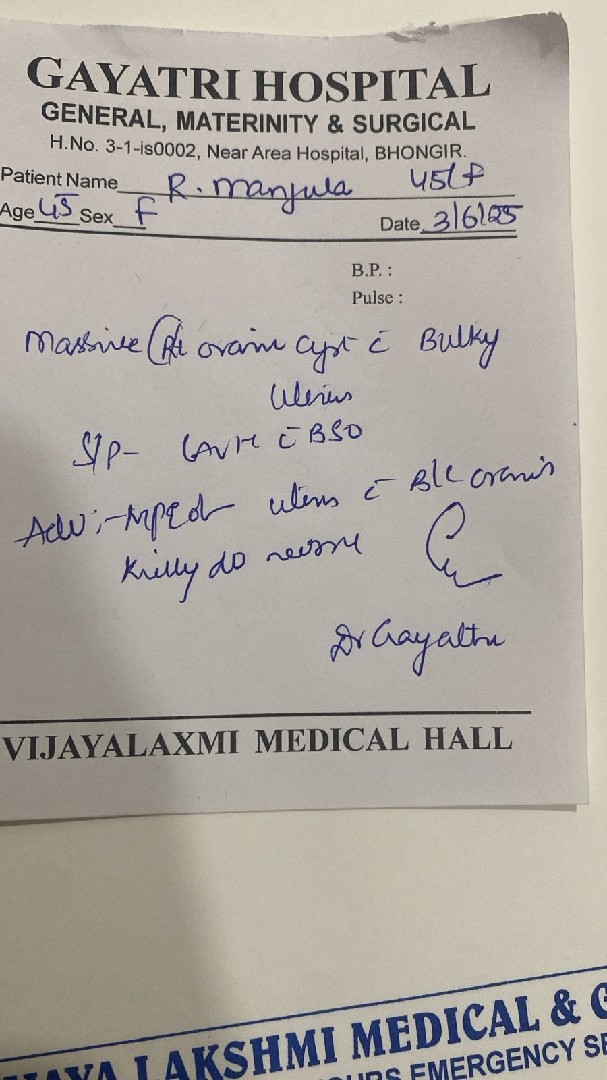 GAYATRI HOSPITAL
GENERAL, MATERINITY & SURGICAL
H.No. 3-1-is0002, Near Area Hospital, BHONGIR.
Patient Name R. Manjula 45/F
Age 45 Sex F Date 3/6/25
B.P. :
Pulse :
Massive Rt ovarin cyst c̄ Bulky
Uterus
S/p- LAVH c̄ BSO
Adv :- HPE of uterus c̄ B/L ovaries
Kindly do
Dr Gayathri
VIJAYALAXMI MEDICAL HALL
LAKSHMI MEDICAL &
EMERGENCY